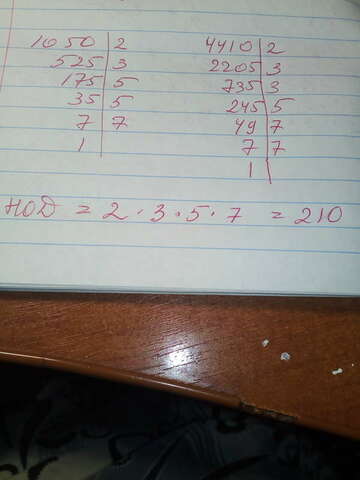 1050 | 2 4410 | 2
525 | 3 2205 | 3
175 | 5 735 | 3
35 | 5 245 | 5
7 | 7 49 | 7
1 | 7 | 7
1 |
НОД = 2 · 3 · 5 · 7 = 210